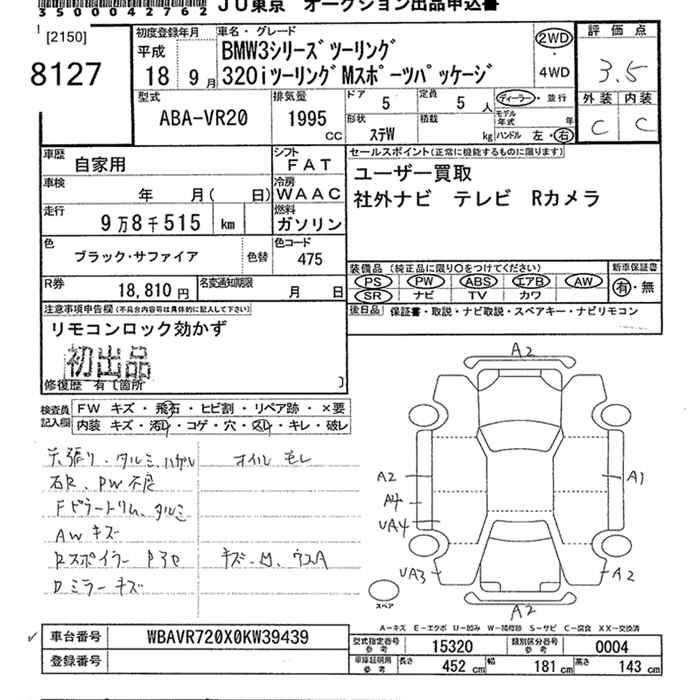 35004042762 JU東京 オークション出品申込書
[2150]
8127
初度登録年月 平成 18 9月
車名・グレード
BMW3シリーズツーリング
320iツーリングMスポーツパッケージ
2WD ・ 4WD
評価点 3.5
外装 C 内装 C
型式 ABA-VR20
排気量 1995 CC
ドア 5 定員 5人
ディーラー・並行
形状 ステW 積載 kg
モデル年式 年
ハンドル 左・右
車歴 自家用
シフト FAT
車検 年 月( 日)
冷房 WAAC
走行 9万8千515 km
燃料 ガソリン
色 ブラック・サファイア 色替
色コード 475
R券 18,810円
名変通知期限 月 日
セールスポイント(正常に機能するものに限ります)
ユーザー買取
社外ナビ テレビ Rカメラ
装備品 (純正品に限り○をつけてください)
PS PW ABS エアB AW
SR ナビ TV カワ
新車保証書 有・無
後日品 保証書・取説・ナビ取説・スペアキー・ナビリモコン
注意事項申告欄(不具合内容は具体的に記入して下さい)
リモコンロック効かず
初出品
修復歴 有〔箇所 〕
検査員記入欄
FW キズ・飛石・ヒビ割・リペア跡・×要
内装 キズ・汚レ・コゲ・穴・スレ・キレ・破レ
天張り・タルミ、ハガレ オイルモレ
右R、PW不良
Fピラートリム、タルミ
AWキズ
Rスポイラー P3セ キズ、凹、ウスA
Dミラーキズ
A2
A2
A4
UA4
UA3
A1
A2
A2
スペア
A-キズ E-エクボ U-凹み W-補修跡 S-サビ C-腐食 XX-交換済
車台番号 WBAVR720X0KW39439
登録番号
型式指定番号 参考 15320
類別区分番号 参考 0004
車庫証明用 参考 長さ 452 cm 幅 181 cm 高さ 143 cm